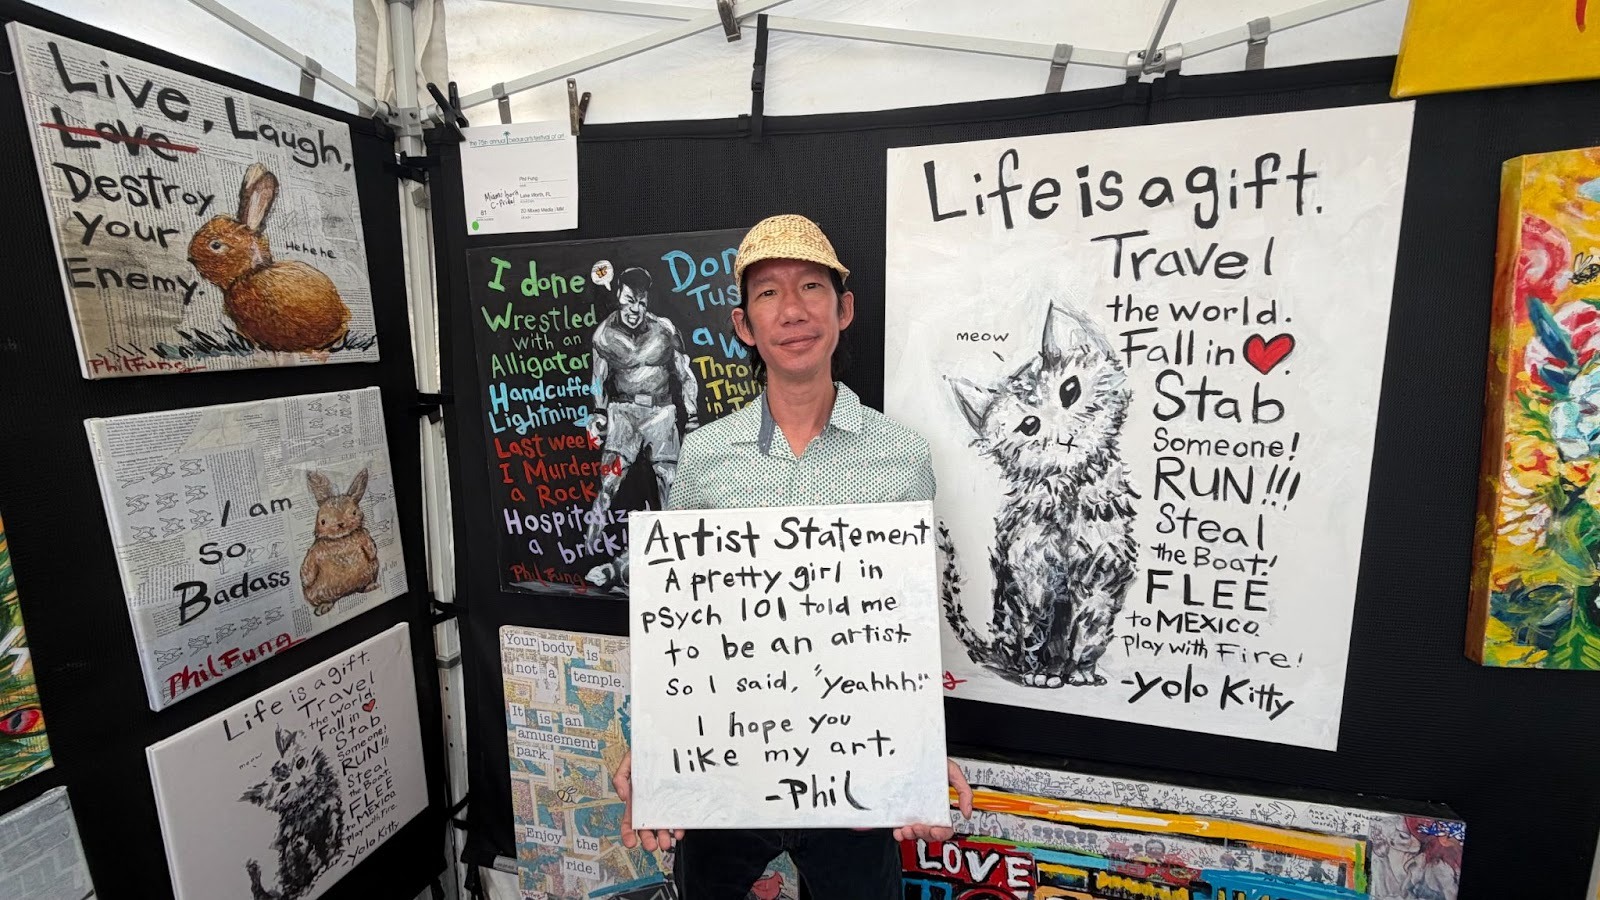 Live, Laugh,
Love
Destroy
your
Enemy.
Hehehe
Phil Fung
I am
so
Badass
Phil Fung
Life is a gift.
Travel
the world.
Fall in
Stab
Someone!
RUN!!!
Steal
the Boat!
FLEE
to MEXICO
Play with Fire.
-Yolo Kitty
meow
the 75th annual
festival of art
Phil Fung
Lake Worth, FL
81
2D Mixed Media
I done
Wrestled
with an
Alligator
Handcuffed
Lightning
Last week
I Murdered
a Rock
Hospitalized
a brick!
Phil Fung
Your body is
not a temple.
It is an
amusement
park.
Enjoy the
ride.
Artist Statement
A pretty girl in
psych 101 told me
to be an artist.
So I said, "Yeahhh!"
I hope you
like my art.
-Phil
Life is a gift.
Travel
the world.
meow
Fall in
Stab
Someone!
RUN!!!
Steal
the Boat!
FLEE
to MEXICO.
Play with Fire!
-Yolo Kitty
pop
LOVE